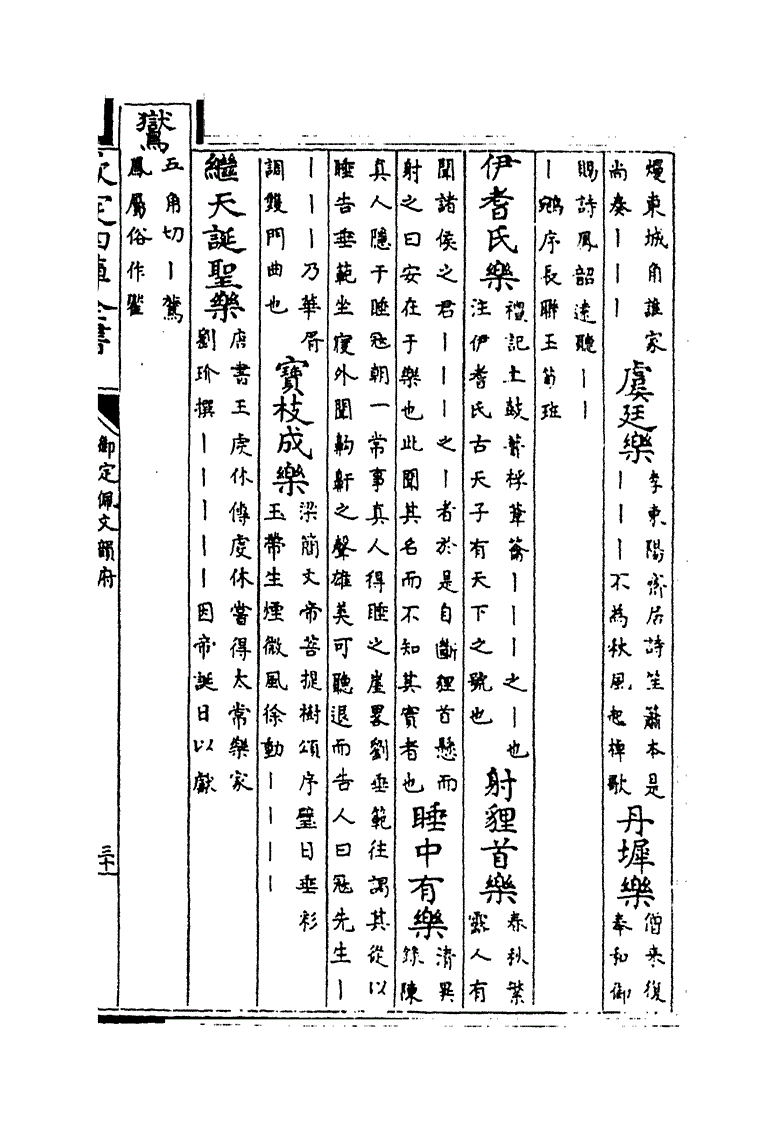 熳東城角誰家
尚奏丨丨丨
虞廷樂
李東陽齋居詩笙蕭本是
丨丨丨不為秋風起棹歌
丹墀樂
僧來復
奉和御
賜詩鳳韶遠聽丨丨
丨鵷序長聯玉筍班
伊耆氏樂
禮記土鼓蕢桴葦籥丨丨丨之丨也
注伊耆氏古天子有天下之號也
射貍首樂
春秋繁
露人有
聞諸侯之君丨丨丨之丨者於是自斷貍首懸而
射之曰安在于樂也此聞其名而不知其實者也
睡中有樂
清異
錄陳
真人隱于睡冦朝一常事真人得睡之崖畧劉垂範往謁其從以
睡告垂範坐寢外聞齁鼾之聲雄美可聽退而告人曰冦先生丨
丨丨丨乃華胥
調雙門曲也
寶枝成樂
梁簡文帝菩提樹頌序璧日垂彩
玉帶生煙微風徐動丨丨丨丨
繼天誕聖樂
唐書王虔休傳虔休嘗得太常樂家
劉玠撰丨丨丨丨丨因帝誕日以獻
鸑
五角切丨鷟
鳳屬俗作𪆫
欽定四庫全書
御定佩文韻府
三十